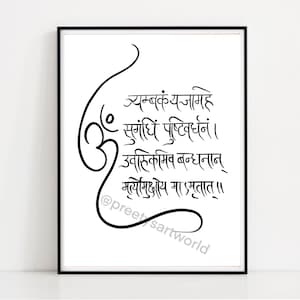 ॐ
त्र्यम्बकं यजामहे
सुगंधिं पुष्टिवर्धनं ।
उर्वारुकमिव बन्धनान्
मृत्योर्मुक्षीय मा ऽमृतात् ॥
@preetysartworld